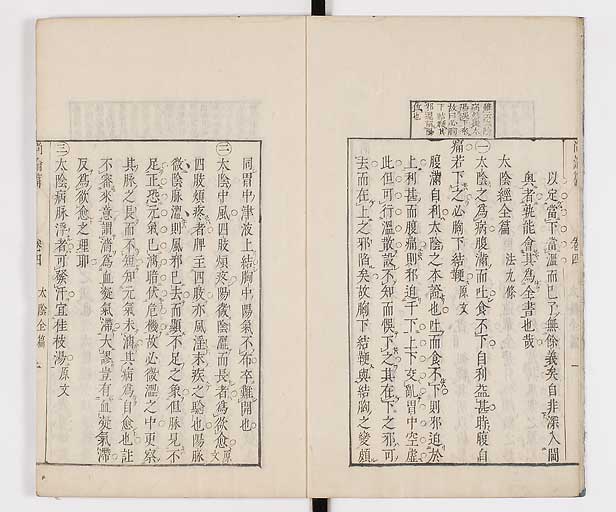 以定當下當溫而已了無餘義矣自非深入閫
奥者㲉能會其為全書也哉
太陰經全篇　法九條
㊀太陰之為病腹滿而吐食不下自利益甚時腹自
痛若下之必胸下結鞕原文
腹滿自利太陰之本證也吐而食不下則邪迫於
上利甚而腹痛則邪迫于下上下交亂胃中空虛
此但可行溫散設不知而悞下之其在下之邪可
去而在上之邪陷矣故胸下結鞕與結胸之變頗
同胃中津液上結胸中陽氣不布卒難開也
㊁太陰中風四肢煩疼陽微陰濇而長者為欲愈原文
四肢煩疼者脾主四肢亦風淫末疾之驗也陽脉
微陰脉濇則風邪已去而顯不足之象但脉見不
足正恐元氣已漓暗伏危機故必微濇之中更察
其脉之長而不短知元氣未漓其病為自愈也註
不審來意謂濇為血凝氣滯大謬豈有血凝氣滯
反為欲愈之理耶
㊂太陰病脉浮者可發汗宜桂枝湯原文
卷四　太陰全篇